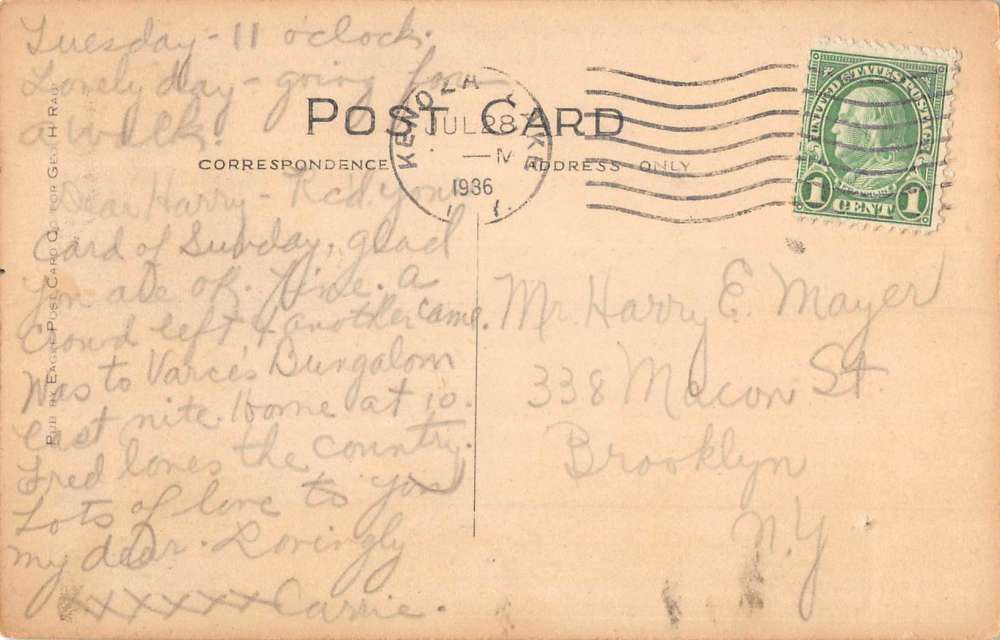 Tuesday - 11 o'clock.
Lonely day - going for
a walk.
Dear Harry - Rcd your
card of Sunday, glad
you are ok. Fine. A
crowd left & another came.
Was to Bungalow
last nite. Home at 10.
Fred loves the country.
Lots of love to you
my dear. Lovingly
xxxxxxx Carrie.
POST CARD
CORRESPONDENCE
ADDRESS ONLY
KENOZA LAKE
JUL 28
M
1936
UNITED STATES POSTAGE
1 CENT 1
Mr. Harry E. Mayer
338 Macon St.
Brooklyn
N.Y
PUB BY EAGLE POST CARD CO. FOR GEO. H RAU